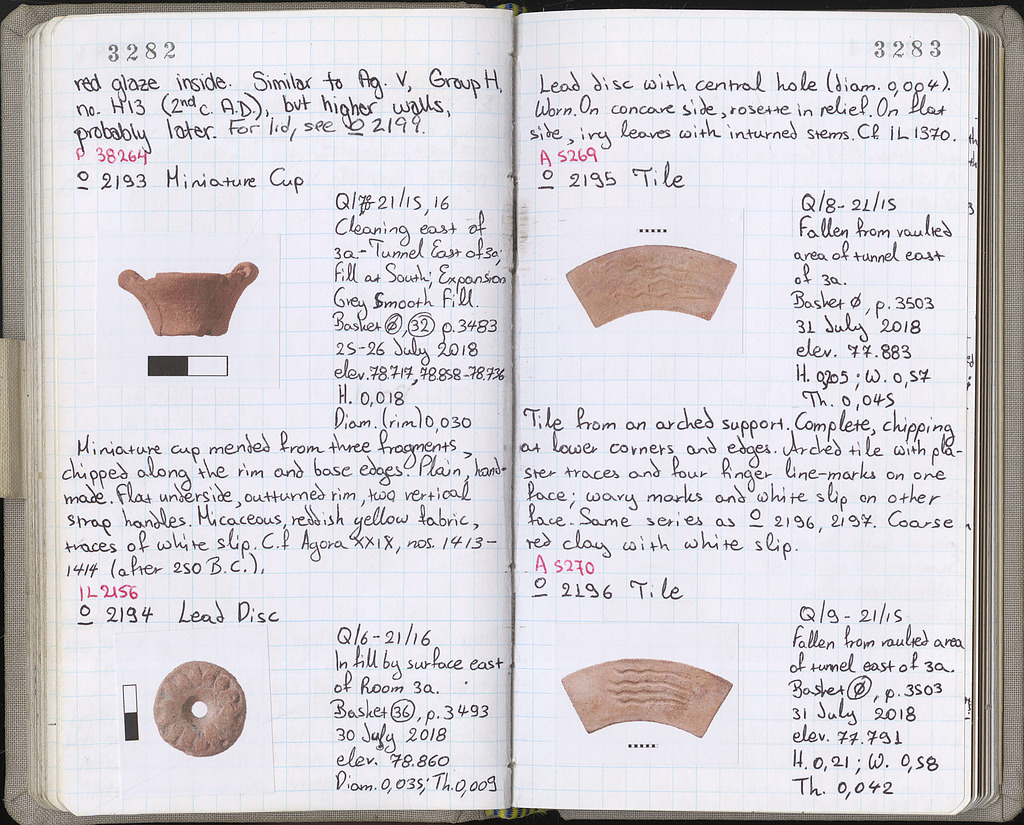 3282
red glaze inside. Similar to Ag. V, Group H,
no. H13 (2nd c. A.D.), but higher walls,
probably later. For lid, see O 2199.
P 38264
O 2193 Miniature Cup
Q/7-21/15, 16
Cleaning east of
3a - Tunnel East of 3a;
Fill at South; Expansion
Grey Smooth Fill.
Basket Ø, 32 p. 3483
25-26 July 2018
elev. 78.717, 78.858-78.736
H. 0,018
Diam. (rim) 0,030
Miniature cup mended from three fragments,
chipped along the rim and base edges. Plain, hand-
made. Flat underside, outturned rim, two vertical
strap handles. Micaceous, reddish yellow fabric,
traces of white slip. C.f Agora XXIX, nos. 1413-
1414 (after 250 B.C.).
IL 2156
O 2194 Lead Disc
Q/6-21/16
In fill by surface east
of Room 3a.
Basket 36, p. 3493
30 July 2018
elev. 78.860
Diam. 0,035; Th. 0,009
3283
Lead disc with central hole (diam. 0,004).
Worn. On concave side, rosette in relief. On flat
side, ivy leaves with inturned stems. Cf. IL 1370.
A 5269
O 2195 Tile
Q/8-21/15
Fallen from vaulted
area of tunnel east
of 3a.
Basket Ø, p. 3503
31 July 2018
elev. 77.883
H. 0,205; W. 0,57
Th. 0,045
Tile from an arched support. Complete, chipping
at lower corners and edges. Arched tile with pla-
ster traces and four finger line-marks on one
face; wavy marks and white slip on other
face. Same series as O 2196, 2197. Coarse
red clay with white slip.
A 5270
O 2196 Tile
Q/9-21/15
Fallen from vaulted area
of tunnel east of 3a.
Basket Ø, p. 3503
31 July 2018
elev. 77.791
H. 0,21; W. 0,58
Th. 0,042